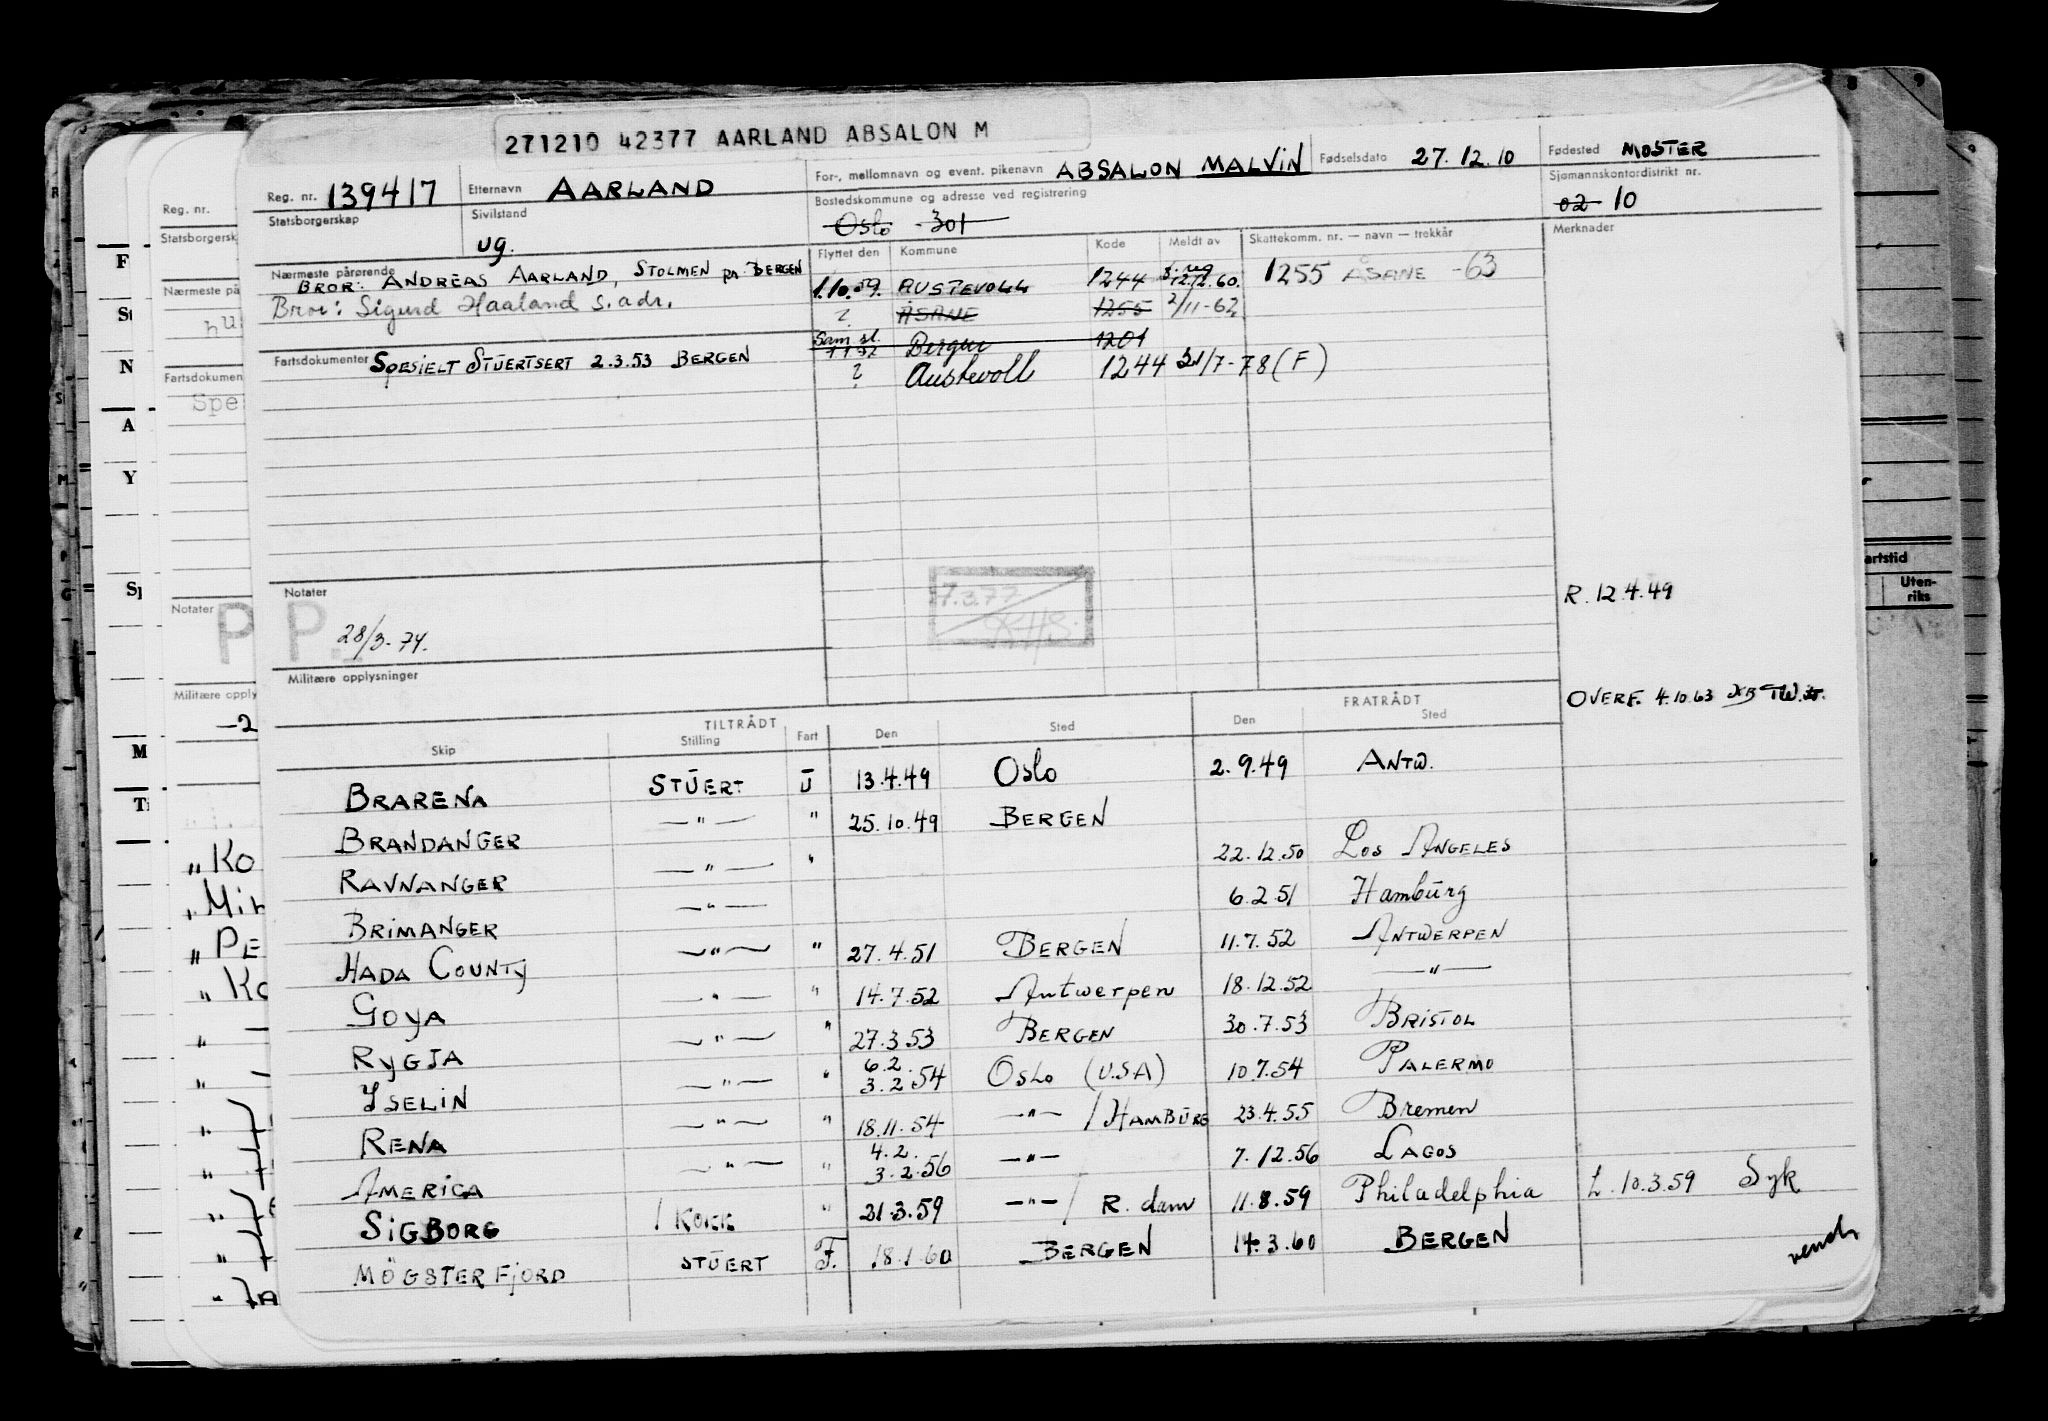 271210 42377 AARLAND ABSALON M
Reg. nr. 139417 Etternavn AARLAND For-, mellomnavn og event. pikenavn ABSALON MALVIN Fødselsdato 27.12.10 Fødested MOSTER
Statsborgerskap Sivilstand ug. Bostedskommune og adresse ved registrering Oslo 301 Sjømannskontordistrikt nr. 02 10
Flyttet den Kommune Kode Meldt av Skattekomm. nr. — navn — trekkår Merknader
Nærmeste pårørende BROR: ANDREAS AARLAND, STOLMEN pr. BERGEN 1.10.59. AUSTEVOLL 1244 12/2.60. 1255 ÅSANE -63
Bror: Sigurd Haaland s. adr. ? ÅSANE 1255 2/11-62
Sam.sl. 1 1 92 Bergen 1201
Fartsdokumenter SPESIELT STUERTSERT 2.3.53 BERGEN ? Austevoll 1244 21/7-78 (F)
Notater
P 28/3-74.
7.3.77
R. 12.4.49
Militære opplysninger
OVERF. 4.10.63
TILTRÅDT FRATRÅDT
Skip Stilling Fart Den Sted Den Sted
BRARENA STUERT U 13.4.49 Oslo 2.9.49 ANTW.
BRANDANGER —"— " 25.10.49 BERGEN
RAVNANGER —"— " 22.12.50 LOS ANGELES
BRIMANGER —"— 6.2.51 Hamburg
HADA COUNTY —"— " 27.4.51 BERGEN 11.7.52 ANTWERPEN
GOYA —"— " 14.7.52 Antwerpen 18.12.52 —"—
RYGJA —"— " 27.3.53 BERGEN 30.7.53 BRISTOL
ISELIN —"— " 6.2. 3.2.54 OSLO (USA) 10.7.54 PALERMO
RENA —"— " 18.11.54 —"— / HAMBURG 23.4.55 Bremen
AMERICA —"— " 4.2. 3.2.56 —"— 7.12.56 LAGOS
SIGBORG / KOKK " 21.3.59 —"— / R.dam 11.8.59 Philadelphia L. 10.3.59 Syk
MÖGSTERFJORD STUERT F. 18.1.60 BERGEN 14.3.60 BERGEN
vend
Reg. nr.
Statsborgersk
Nærmeste på
Fartsdokumen
Spe
Notater
P
Militære opply
-2
"Ko
"PE
F
St
N
A
Y
Sp
M
Ti
artstid
Uten-
riks